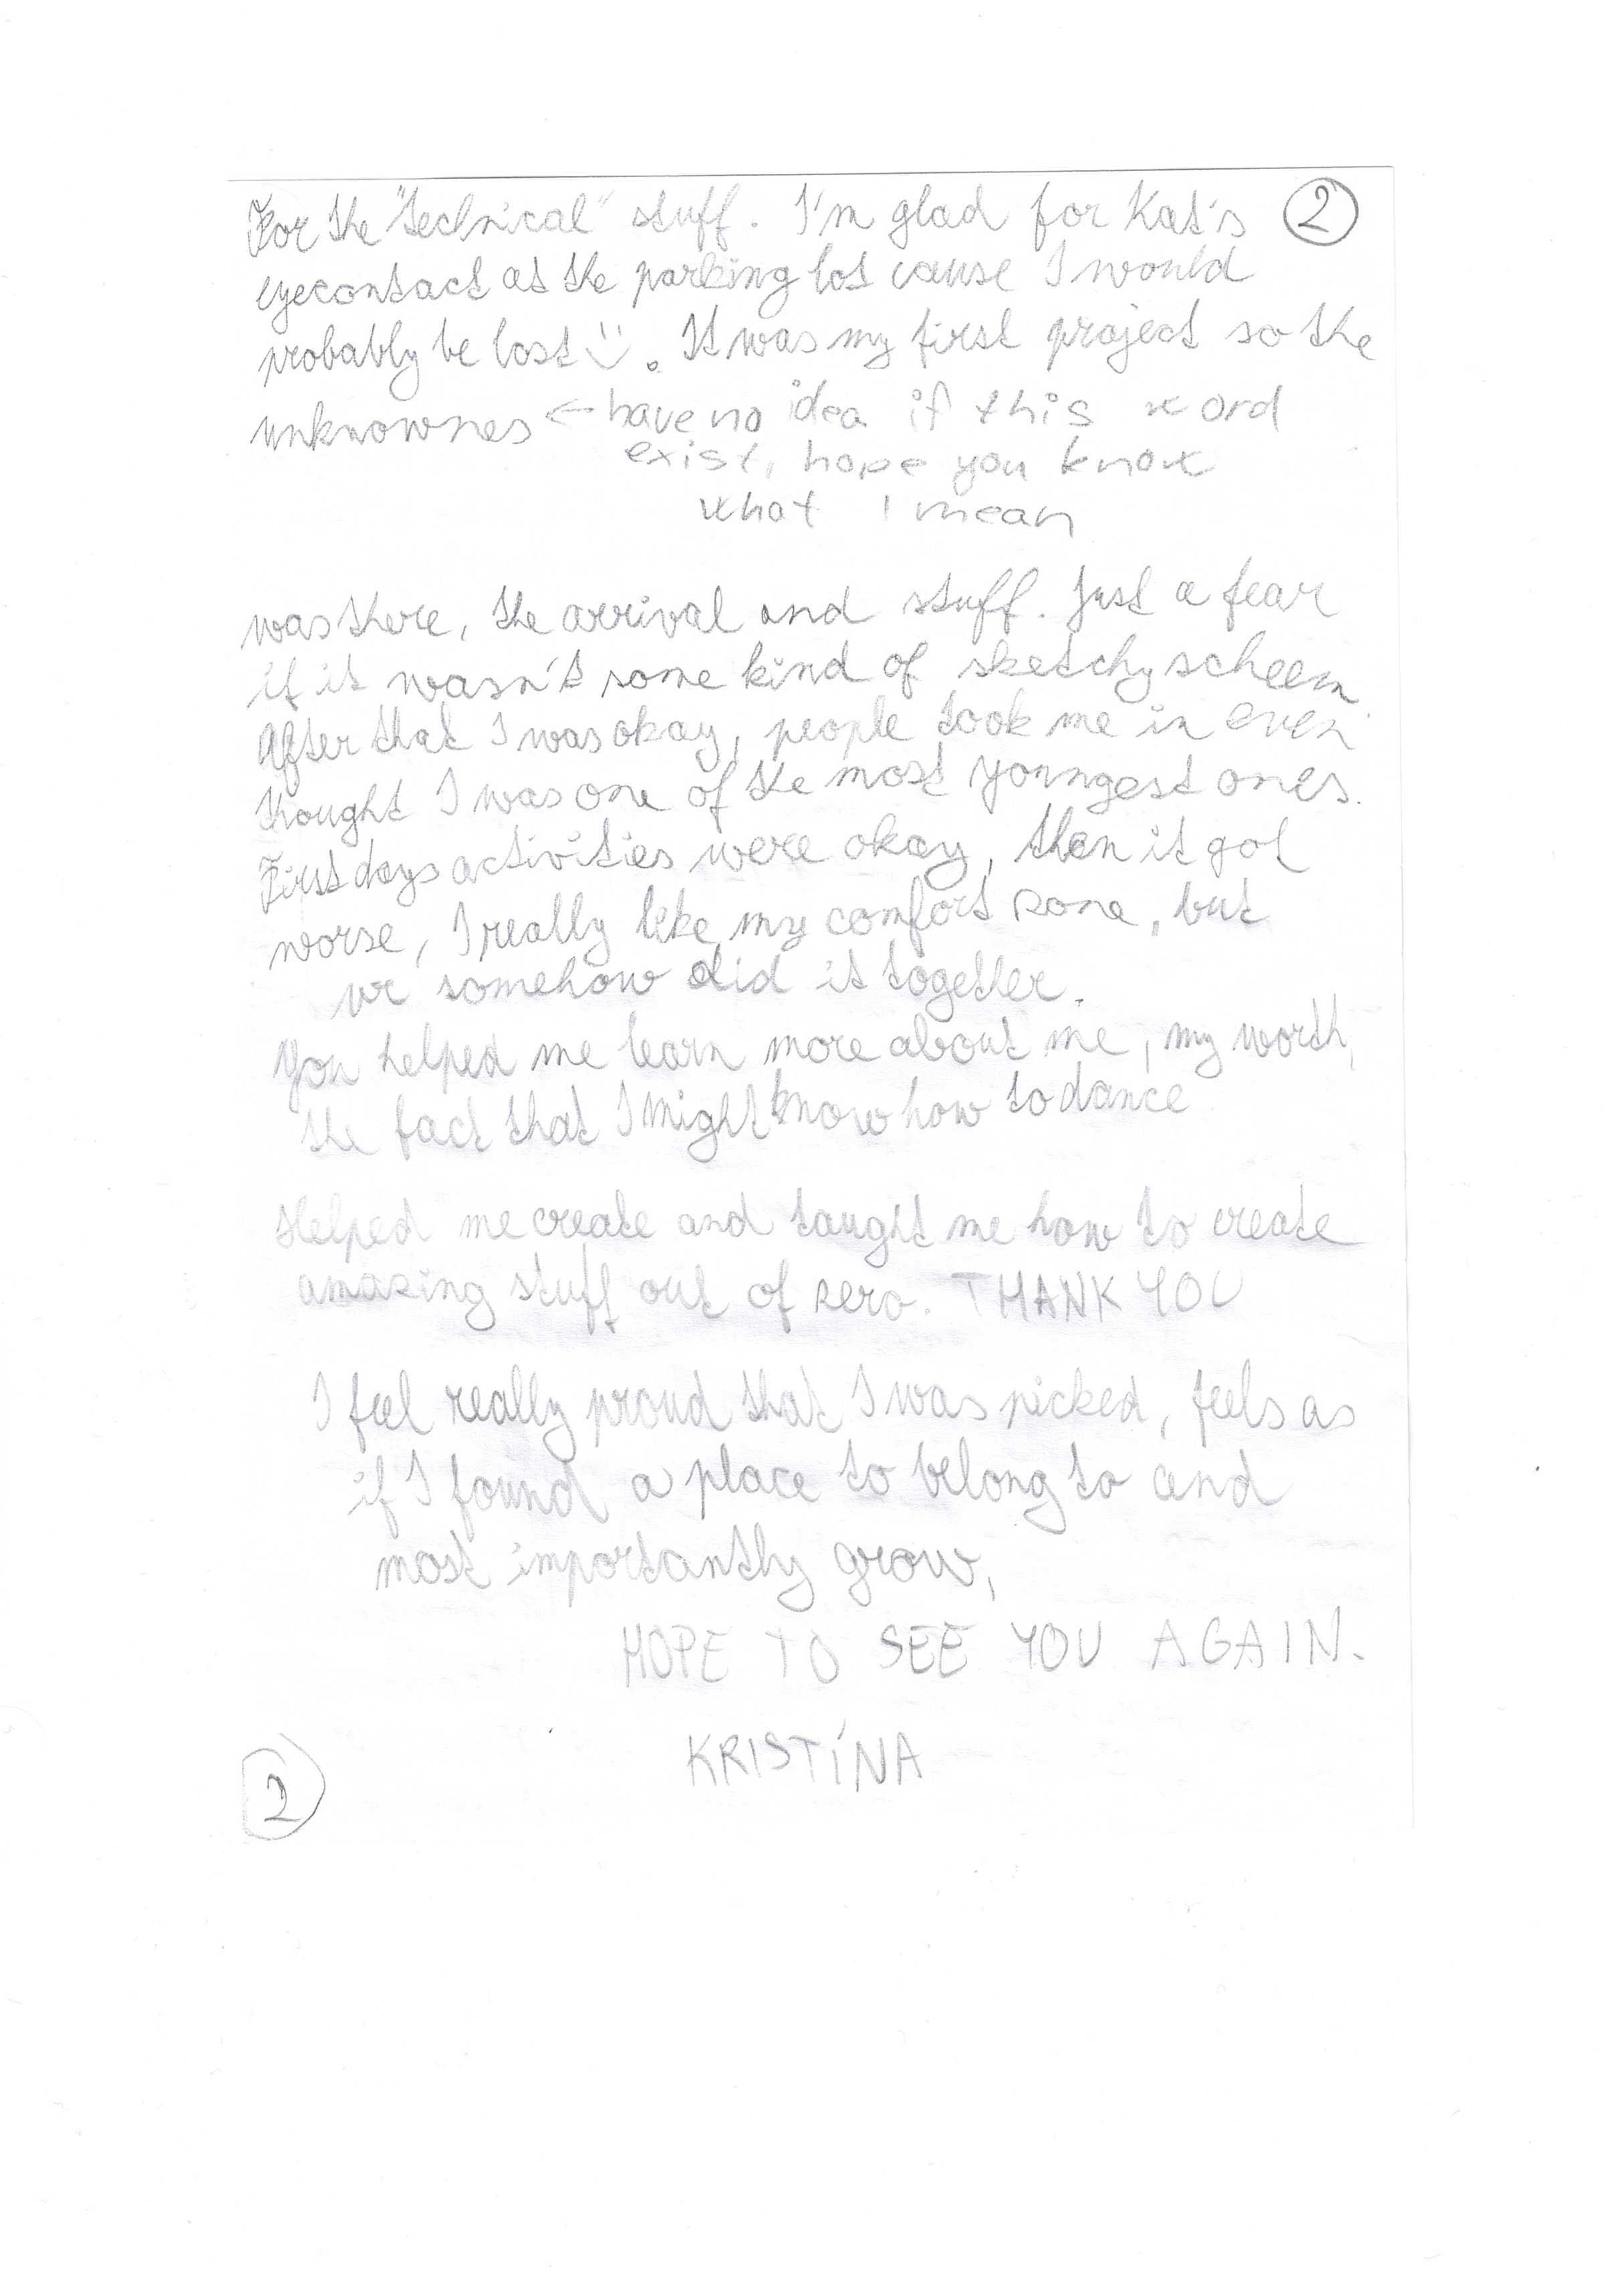 For the "technical" stuff. I'm glad for Kat's ②
eyecontact at the parking lot cause I would
probably be lost :). It was my first project so the
unknownes ← have no idea if this word
exist, hope you know
what I mean
was there, the arrival and stuff. Just a fear
if it wasn't some kind of sketchy scheem
After that I was okay, people took me in even
thought I was one of the most youngest ones.
First days activities were okay, then it got
worse, I really like my comfort zone, but
we somehow did it together.
You helped me learn more about me, my worth,
the fact that I might know how to dance
Helped me create and taught me how to create
amazing stuff out of zero. THANK YOU
I feel really proud that I was picked, feels as
if I found a place to belong to and
most importantly grow,
HOPE TO SEE YOU AGAIN.
KRISTÍNA
②